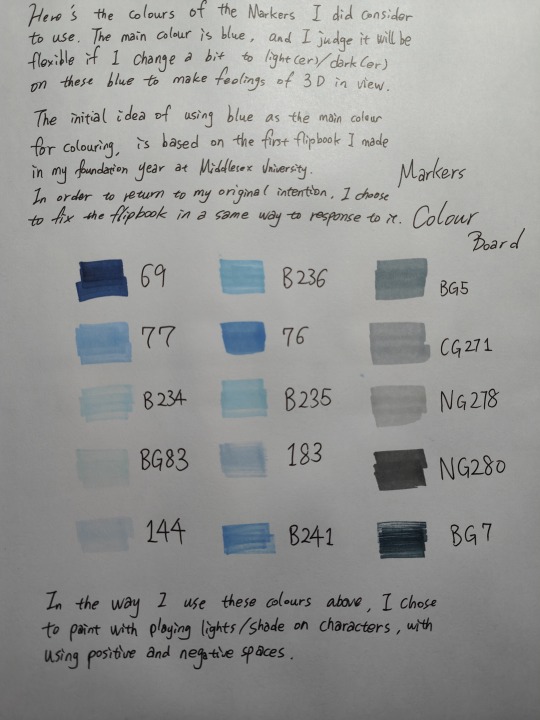 Here's the colours of the Markers I did consider
to use. The main colour is blue, and I judge it will be
flexible if I change a bit to light(er)/dark(er)
on these blue to make feelings of 3D in view.
The initial idea of using blue as the main colour
for colouring, is based on the first flipbook I made
in my foundation year at Middlesex University.
In order to return to my original intention, I choose
to fix the flipbook in a same way to response to it.
Markers
Colour
Board
69 B236 BG5
77 76 CG271
B234 B235 NG278
BG83 183 NG280
144 B241 BG7
In the way I use these colours above, I chose
to paint with playing lights/shade on characters, with
using positive and negative spaces.